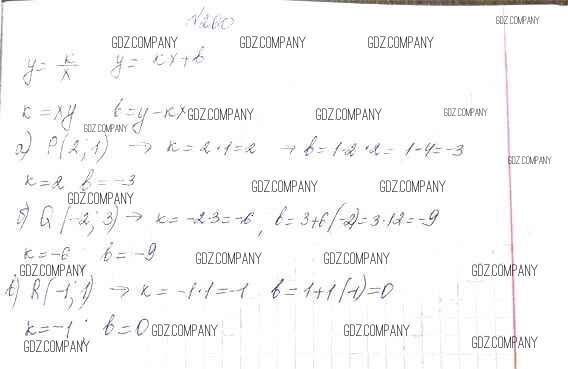 №260
GDZ.COMPANY
GDZ.COMPANY GDZ.COMPANY GDZ.COMPANY
y = k/x y = kx + b
k = xy b = y - kx GDZ.COMPANY GDZ.COMPANY GDZ.COMPANY
GDZ.COMPANY
а) P(2; 1) → k = 2·1 = 2 → b = 1·2·2 = 1-4 = -3
GDZ.COMPANY
k = 2 b = -3 GDZ.COMPANY GDZ.COMPANY
GDZ.COMPANY
б) Q(-2; 3) → k = -2·3 = -6, b = 3+6(-2) = 3·12 = -9
k = -6 b = -9 GDZ.COMPANY GDZ.COMPANY GDZ.COMPANY
GDZ.COMPANY GDZ.COMPANY GDZ.COMPANY
в) R(-1; 1) → k = -1·1 = -1 b = 1+1(-1) = 0
k = -1; b = 0 GDZ.COMPANY GDZ.COMPANY
GDZ.COMPANY GDZ.COMPANY